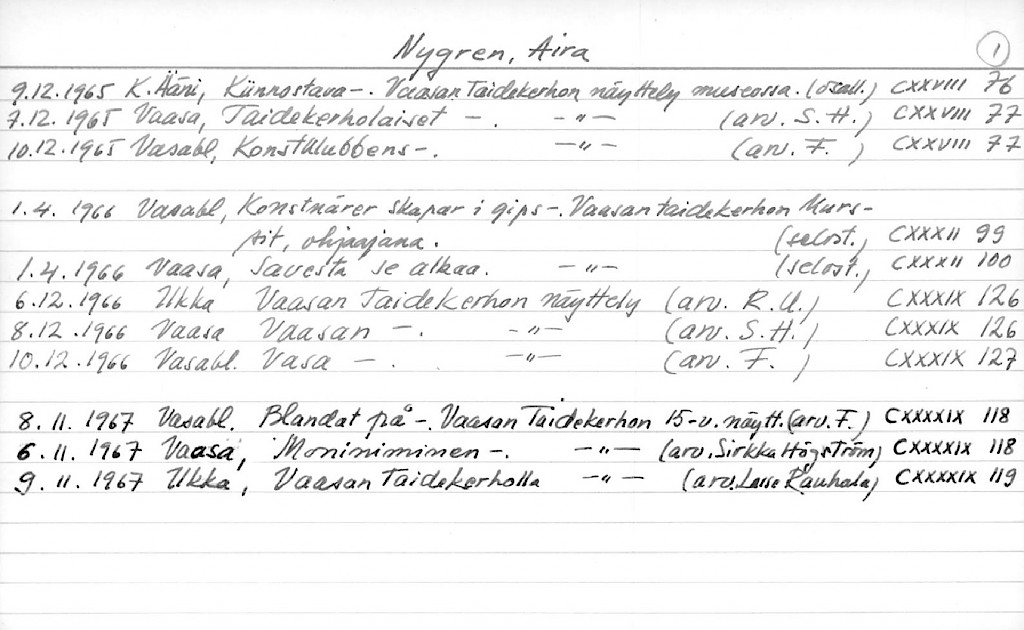 Nygren, Aira 1
9.12.1965 K.Ääni, Künnostava-. Vaasan Taidekerhon näyttely museossa. (osall.) CXXVIII 76
7.12.1965 Vaasa, Taidekerholaiset -. -"- (arv. S.H.) CXXVIII 77
10.12.1965 Vasabl, Konstklubbens-. -"- (arv. F. ) CXXVIII 77
1.4. 1966 Vasabl, Konstnärer skapar i gips-. Vaasan taidekerhon kurs-
sit, ohjaajana. (selost., CXXXII 99
1.4.1966 Vaasa, Savesta se alkaa. -"- (selost., CXXXII 100
6.12.1966 Ukka Vaasan Taidekerhon näyttely (arv. R.U.) CXXXIX 126
8.12.1966 Vaasa Vaasan -. -"- (arv. S.H.) CXXXIX 126
10.12.1966 Vasabl. Vasa -. -"- (arv. F. ) CXXXIX 127
8.11.1967 Vasabl. Blandat på -. Vaasan Taidekerhon 15-v. näytt. (arv. F.) CXXXXIX 118
6.11.1967 Vaasa, Moniniminen -. -"- (arv. Sirkka Högström) CXXXXIX 118
9.11.1967 Ukka, Vaasan Taidekerholla -"- (arv. Lasse Rauhala) CXXXXIX 119